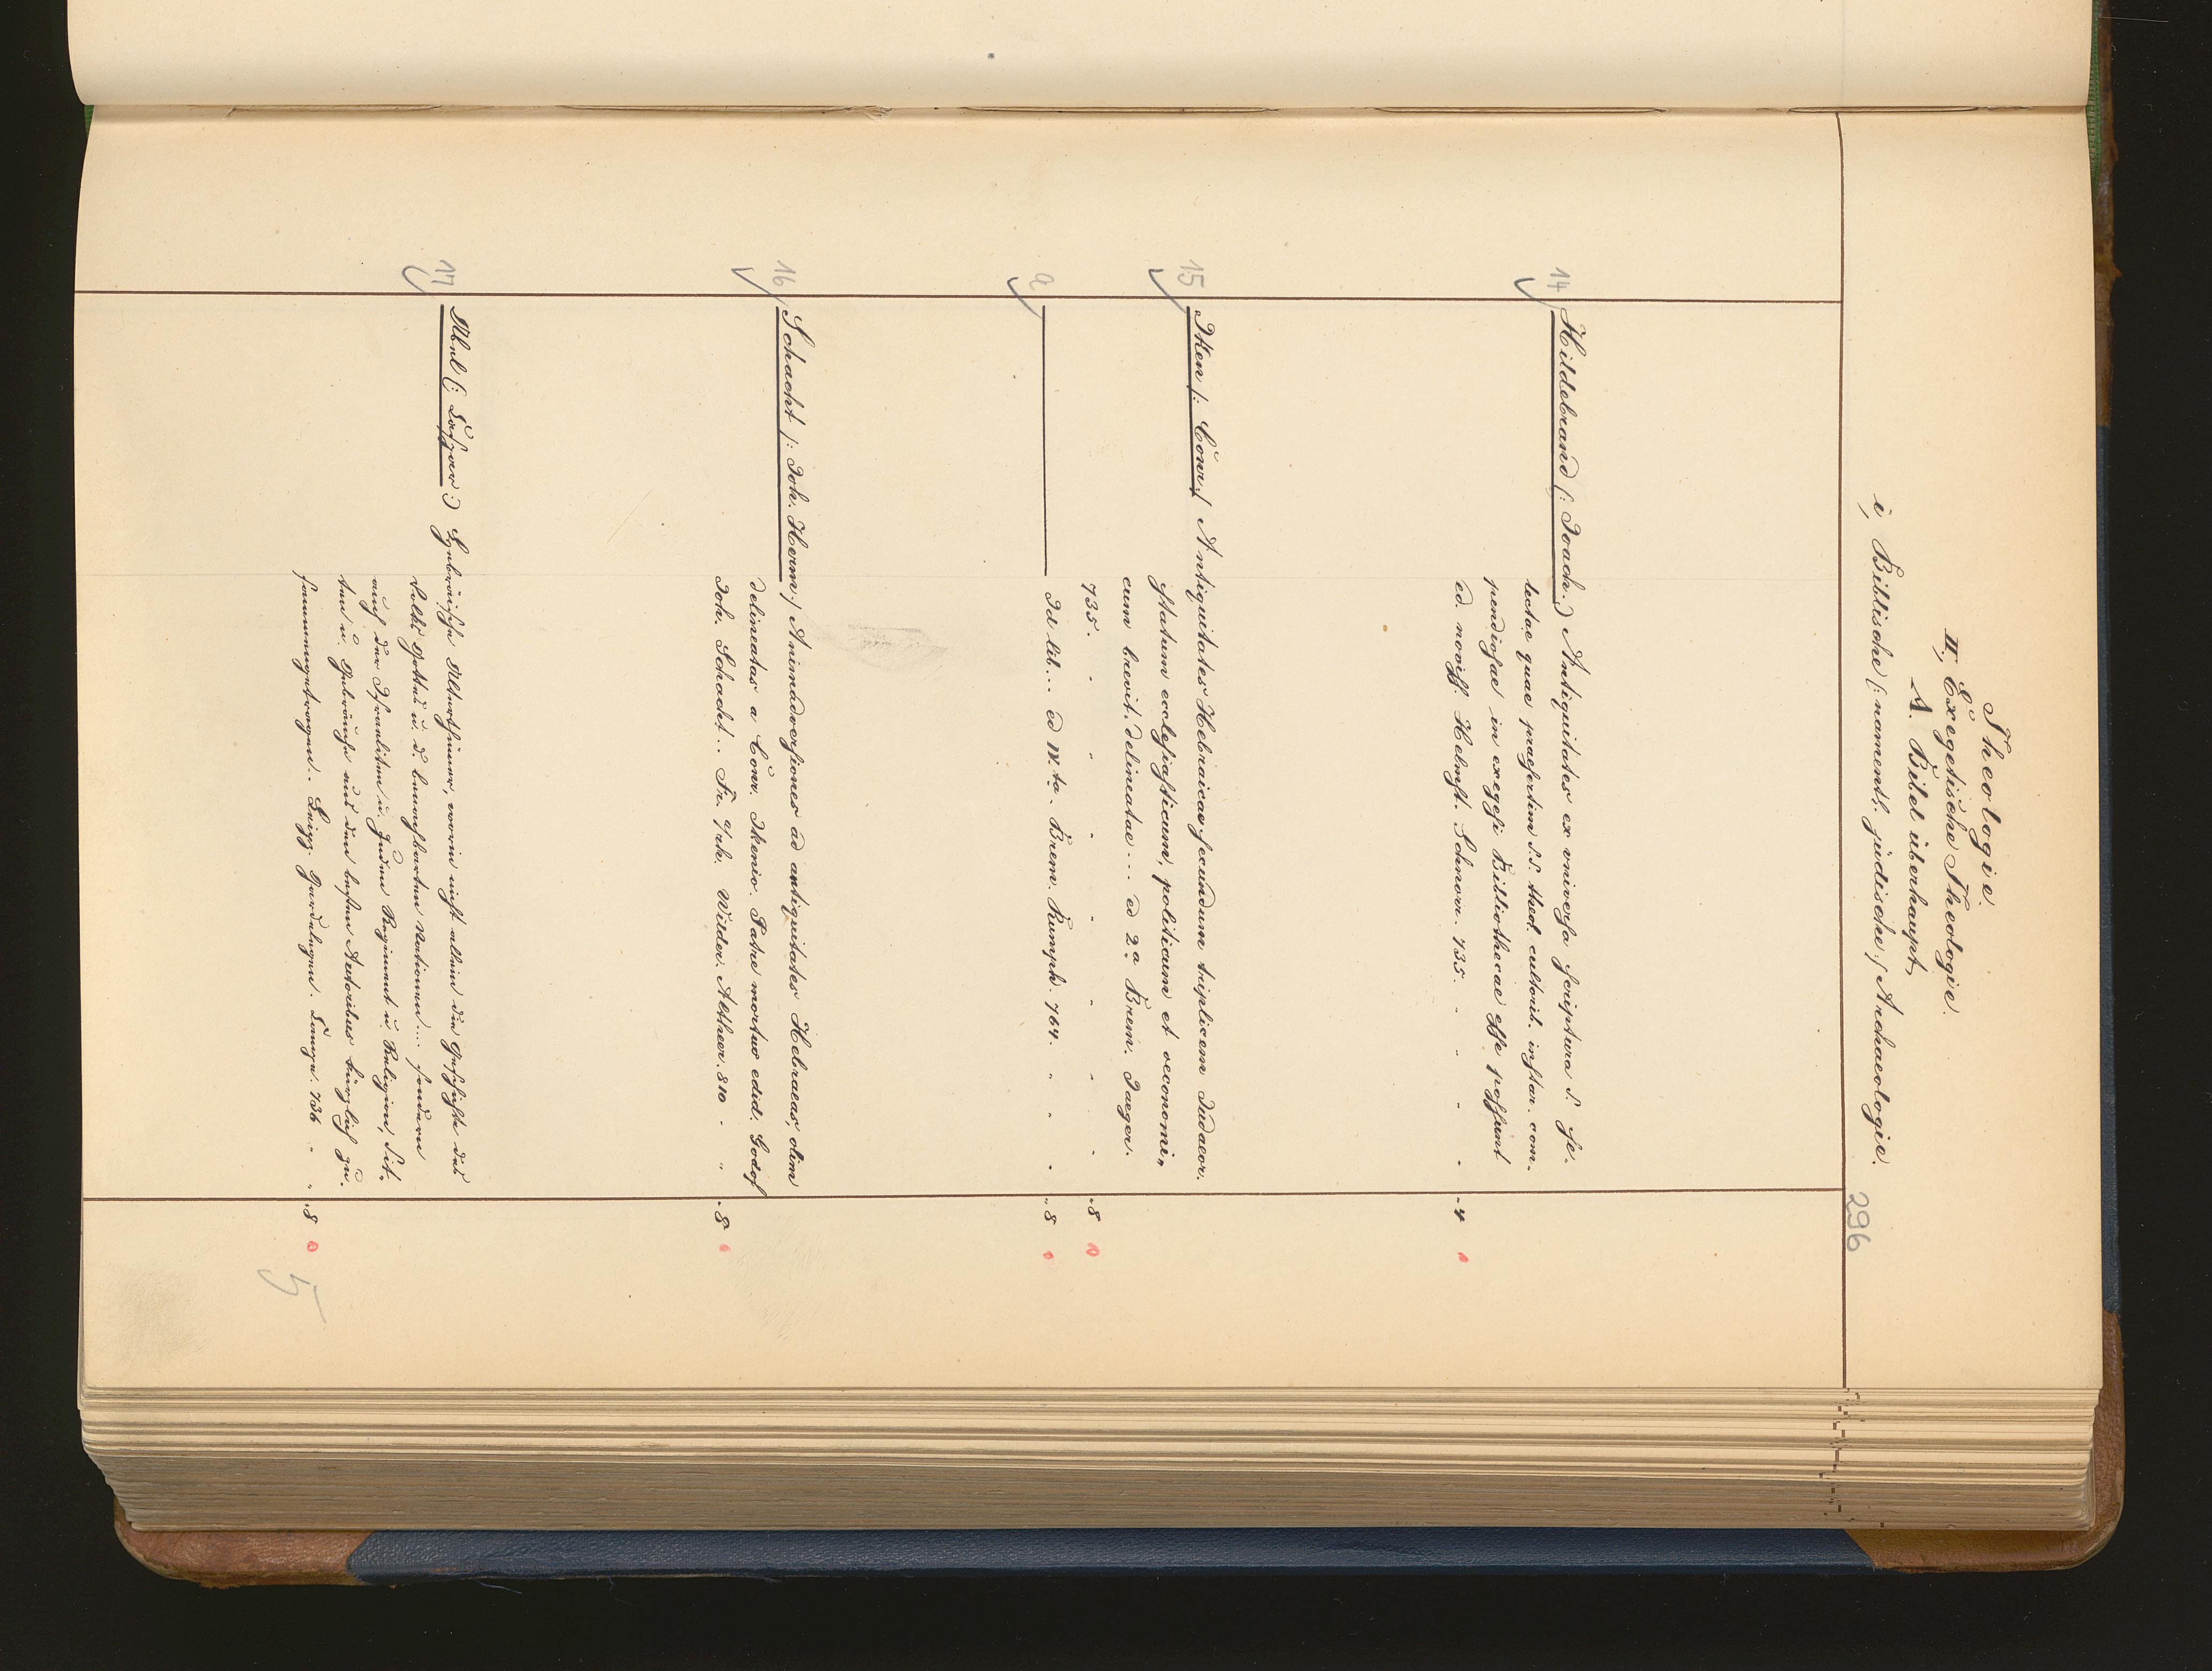 Theologie.
II, Exegetische Theologie.
A. Bibel überhaupt,
i, Biblische (: namentl. jüdische :) Archaeologie.
296
14 Hildebrand (: Joach. :) Antiquitates ex vniversa scriptura S. se-
lectae quae praesertim S.S. theol. cultorib. instar. com-
pendiosae in exegesi Bibliothecae esse possunt
ed. noviss. Helmst. Schnorr. 735. - - - - 4
15 Iken (: Conr. :) Antiquitates Hebraicae secundum triplicem Judaeor.
statum ecclesiasticum, politicum et oeconomi-
cum brevit. delineatae ... ed 2a Brem. Jaeger.
735. - - - - - - - 8
a Id lib... ed IV.ta. Brem. Rumph. 764. - - - 8
16 Schacht (: Joh. Herm. :) Animadversiones ad antiquitates Hebraeas, olim
delineatas a Conr. Ikenio. Patre mortuo edid. Godof
Joh. Schacht.. Tr. a/rh. Wilder. Altheer. 810 - - 8
17 Abel (: Caspar :) Hebräische Alterthümer, worin nicht allein die Geschichte des
Volks Gottes u. d. benachbarten Nationen.... sondern
auch der Israeliten u. Juden Regiment u. Religion, Sit-
ten u. Gebräuche aus den besten Autoribus kürzlich zu-
sammengetragen.. Leipz. Gardelegen. Campe. 736 - - 8
5